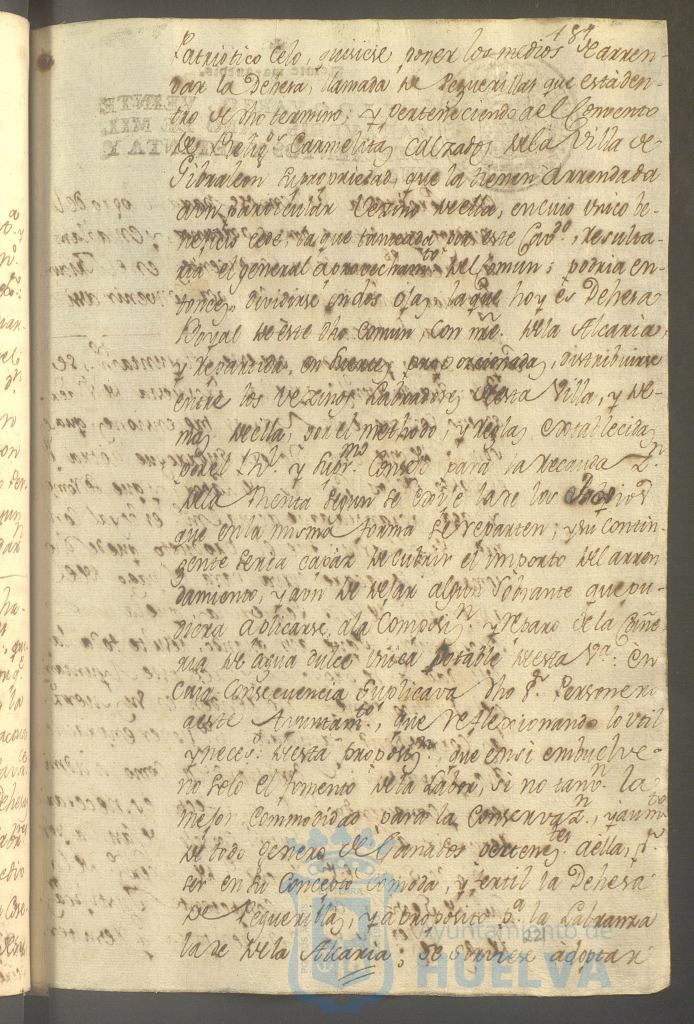 181
Patriotico Celo, quisiese poner los medios de arren-
dar la Dehesa, llamada de Peguerillas que está den-
tro de dho termino; y perteneciendo a el Convento
de Relig.s Carmelitas Calzados de la Villa de
Gibraleon su propriedad, que la tienen arrendada
a un particular Vezino de ella, en cuio unico be-
neficio cede; la que tanteada por este Cav.do, resulta-
ria el general aprovecham.to del Comun; podria en-
tonces dividirse en dos ojas, la que hoy és Dehesa
Royal de este dho comun, con mre. de la Alcaria,
y repartida, en suertes proporcionadas, distribuirse
entre los Vezinos Labradores desta Villa, y de-
mas de ella, por el methodo, y reglas establecidas
por el R.l y Supr.mo Consejo para la recauda.n
de la Renta segun se exije la de los
que en la misma forma se reparten; y su contin-
gente seria capáz de cubrir el importe del arren-
damiento, y aun de dejar algun sobrante que pu-
diera aplicarse, a la Composi.n y reparo de la Cañe-
ria de agua dulce unica potable desta V.a: En
cuia Consecuencia suplicava dho S.r Personero
a este Ayuntam.to, que reflexionando lo util
y neces.o desta proposi.n, que en si embuelve
no solo el fomento de la Labor, si no tamv.n la
mejor Commodidad para la Conserva.n, y aum.to
de todo genero de Ganados pertenez.tes a ella, p.r
ser en su Concepto Comoda, y fertil la Dehesa
de Peguerillas, y a proposito p.a la Labranza
la de de la Alcaria; se sirviese adoptar
Ayuntamiento de
HUELVA